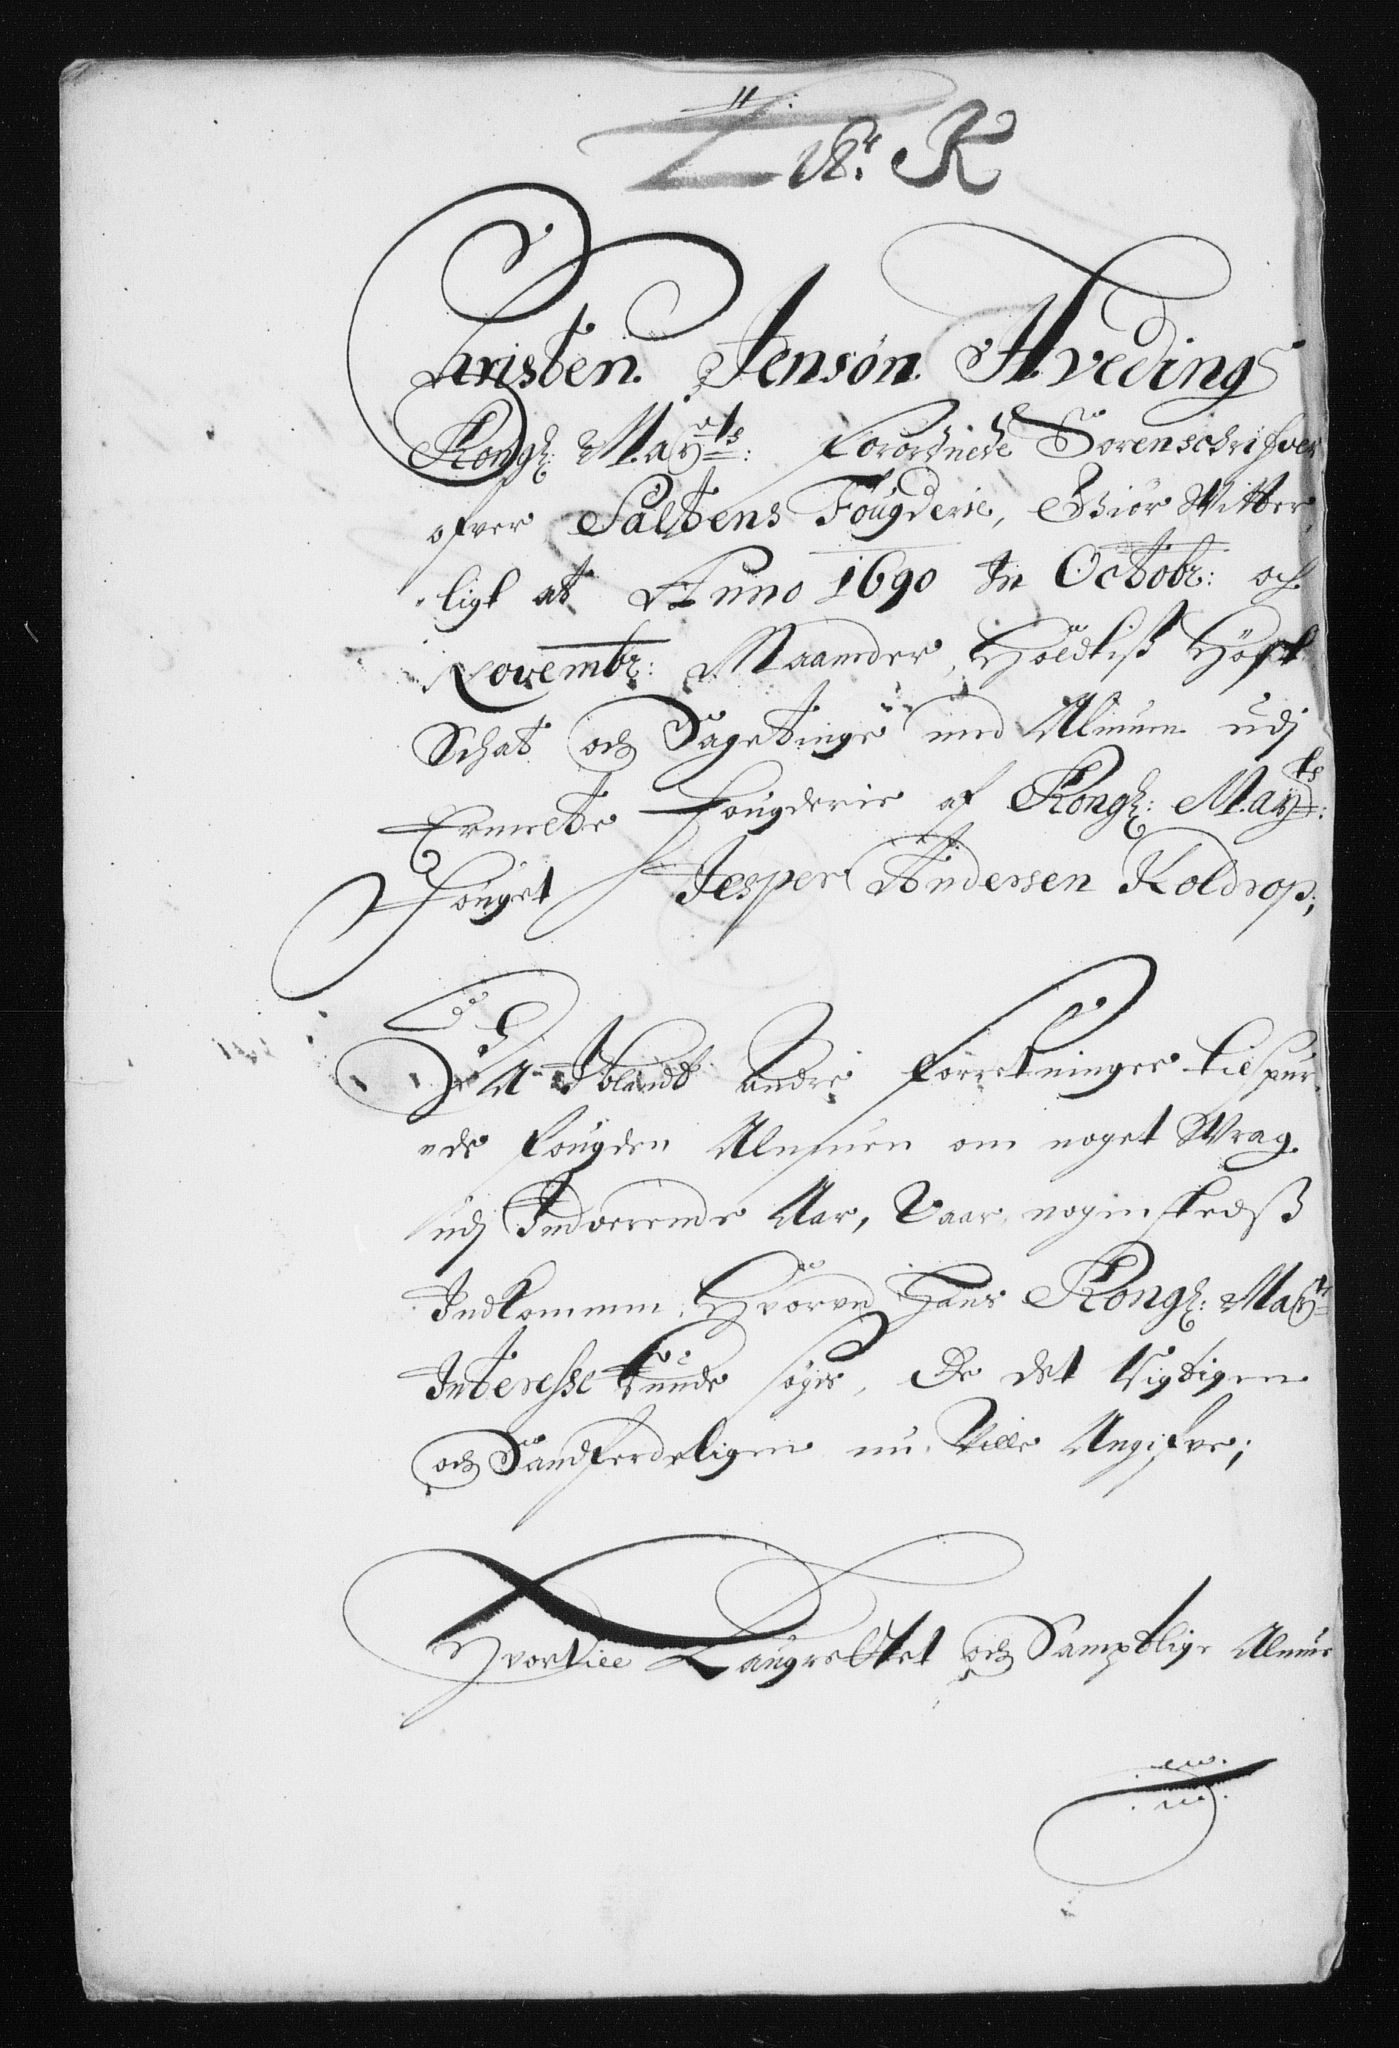 11.
N: K
Christen Jensøn Hveding
Kongl: May:ts: Forordnede Sorenschrifver
ofver Saltens Fougderie, Giør Witter-
ligt at Anno 1690 In Octobr: och
Novembr: Maaneder, Holdtiß Høst
Schat och Sagetinge med Almuen udj
Ermelte Fougderie af Kongl: May:ts:
Fouget Jesper Andersen Koldrop;
Da Iblandt andre forretninger tilspur-
de fougden Almuen om noget Wrag
udj Indverende Aar, Vaar nogenstedß
Indkommen, Hvorved Hans Kongl: May:ts
Interesse kunde søges, De det Rigtigen
och Sandferdeligen nu Ville Angifve;
Hvortill Laugrettet och Samptlige Almue